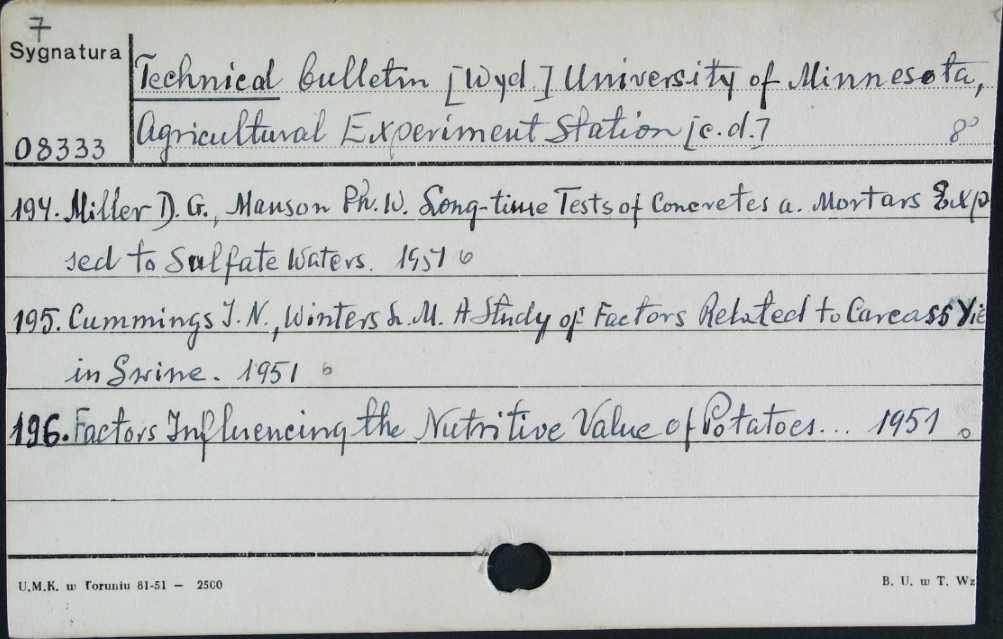 7
Sygnatura
08333
Technical bulletin [Wyd.] University of Minnesota,
Agricultural Experiment Station [c.d.] 8°
194. Miller D. G., Manson Ph. W. Long-time Tests of Concretes a. Mortars Expo
sed to Sulfate Waters. 1951
195. Cummings J. N., Winters L. M. A Study of Factors Related to Carcass Yie
in Swine. 1951
196. Factors Influencing the Nutritive Value of Potatoes... 1951
U.M.K. w Toruniu 81-51 — 2500
B. U. w T. Wz